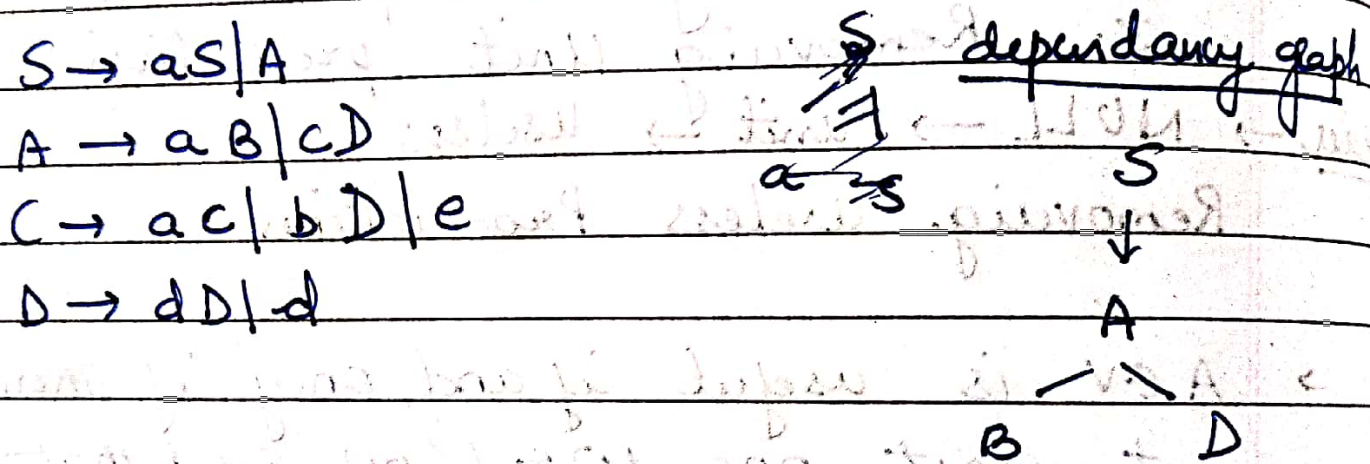 S → aS|A
A → aB|cD
C → ac|bD|e
D → dD|d
S
a S
dependancy graph
S
↓
A
B D